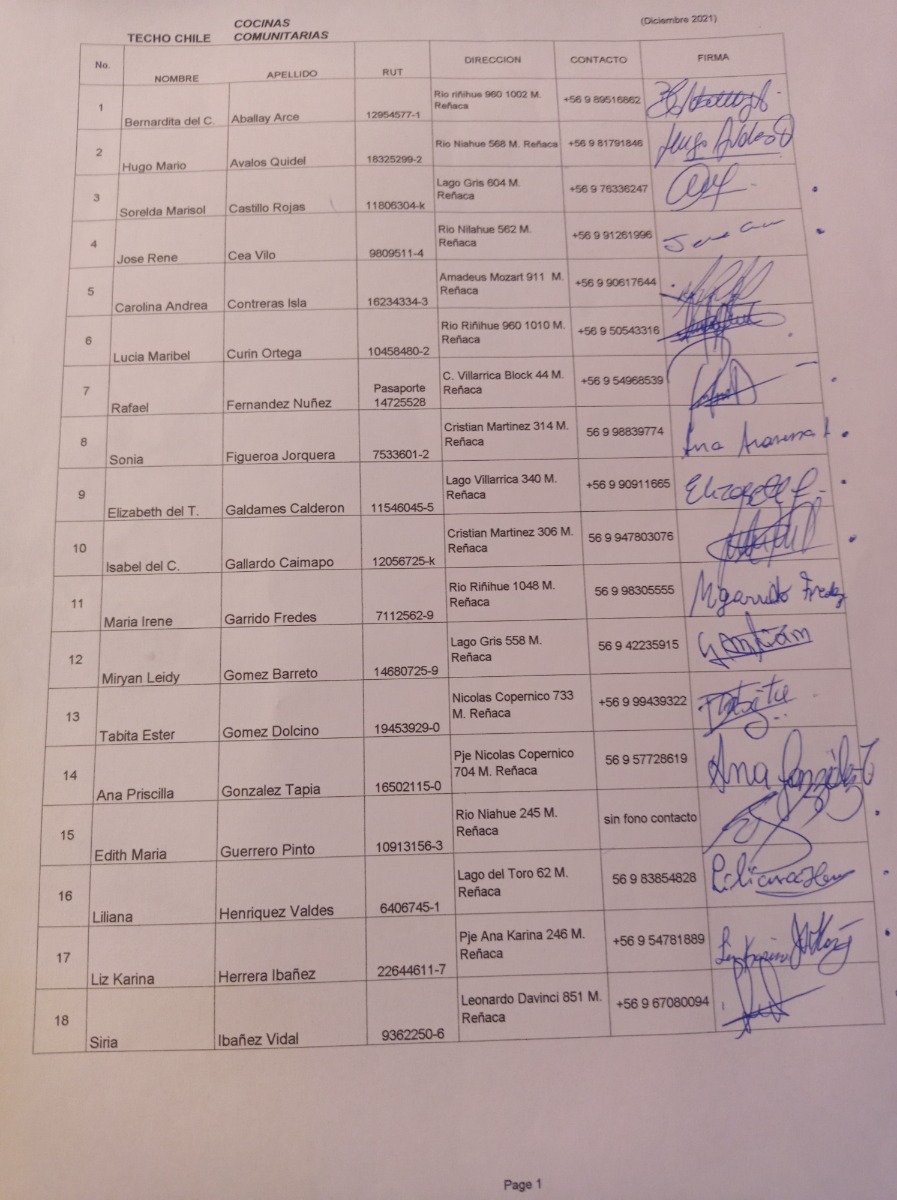 COCINAS
(Diciembre 2021)
TECHO CHILE COMUNITARIAS
No. NOMBRE APELLIDO RUT DIRECCION CONTACTO FIRMA
Rio riñihue 960 1002 M.
1 Bernardita del C. Aballay Arce 12954577-1 Reñaca +56 9 89516862
2 Hugo Mario Avalos Quidel 18325299-2 Rio Niahue 568 M. Reñaca +56 9 81791846 Hugo Avalos Q
Lago Gris 604 M.
3 Sorelda Marisol Castillo Rojas 11806304-k Reñaca +56 9 76336247
Rio Nilahue 562 M.
4 Jose Rene Cea Vilo 9809511-4 Reñaca +56 9 91261996
Amadeus Mozart 911 M.
5 Carolina Andrea Contreras Isla 16234334-3 Reñaca +56 9 90617644
Rio Riñihue 960 1010 M.
6 Lucia Maribel Curin Ortega 10458480-2 Reñaca +56 9 50543316
Pasaporte C. Villarrica Block 44 M.
7 Rafael Fernandez Nuñez 14725528 Reñaca +56 9 54968539
Cristian Martinez 314 M.
8 Sonia Figueroa Jorquera 7533601-2 Reñaca 56 9 98839774 Ana
Lago Villarrica 340 M.
9 Elizabeth del T. Galdames Calderon 11546045-5 Reñaca +56 9 90911665 Elizabeth
Cristian Martinez 306 M.
10 Isabel del C. Gallardo Caimapo 12056725-k Reñaca 56 9 947803076
Rio Riñihue 1048 M.
11 Maria Irene Garrido Fredes 7112562-9 Reñaca 56 9 98305555 Mgarrido Fredez
Lago Gris 558 M.
12 Miryan Leidy Gomez Barreto 14680725-9 Reñaca 56 9 42235915
Nicolas Copernico 733
13 Tabita Ester Gomez Dolcino 19453929-0 M. Reñaca +56 9 99439322
Pje Nicolas Copernico
14 Ana Priscilla Gonzalez Tapia 16502115-0 704 M. Reñaca 56 9 57728619 Ana González T
Rio Niahue 245 M.
15 Edith Maria Guerrero Pinto 10913156-3 Reñaca sin fono contacto
Lago del Toro 62 M.
16 Liliana Henriquez Valdes 6406745-1 Reñaca 56 9 83854828
Pje Ana Karina 246 M.
17 Liz Karina Herrera Ibañez 22644611-7 Reñaca +56 9 54781889
Leonardo Davinci 851 M.
18 Siria Ibañez Vidal 9362250-6 Reñaca +56 9 67080094
Page 1